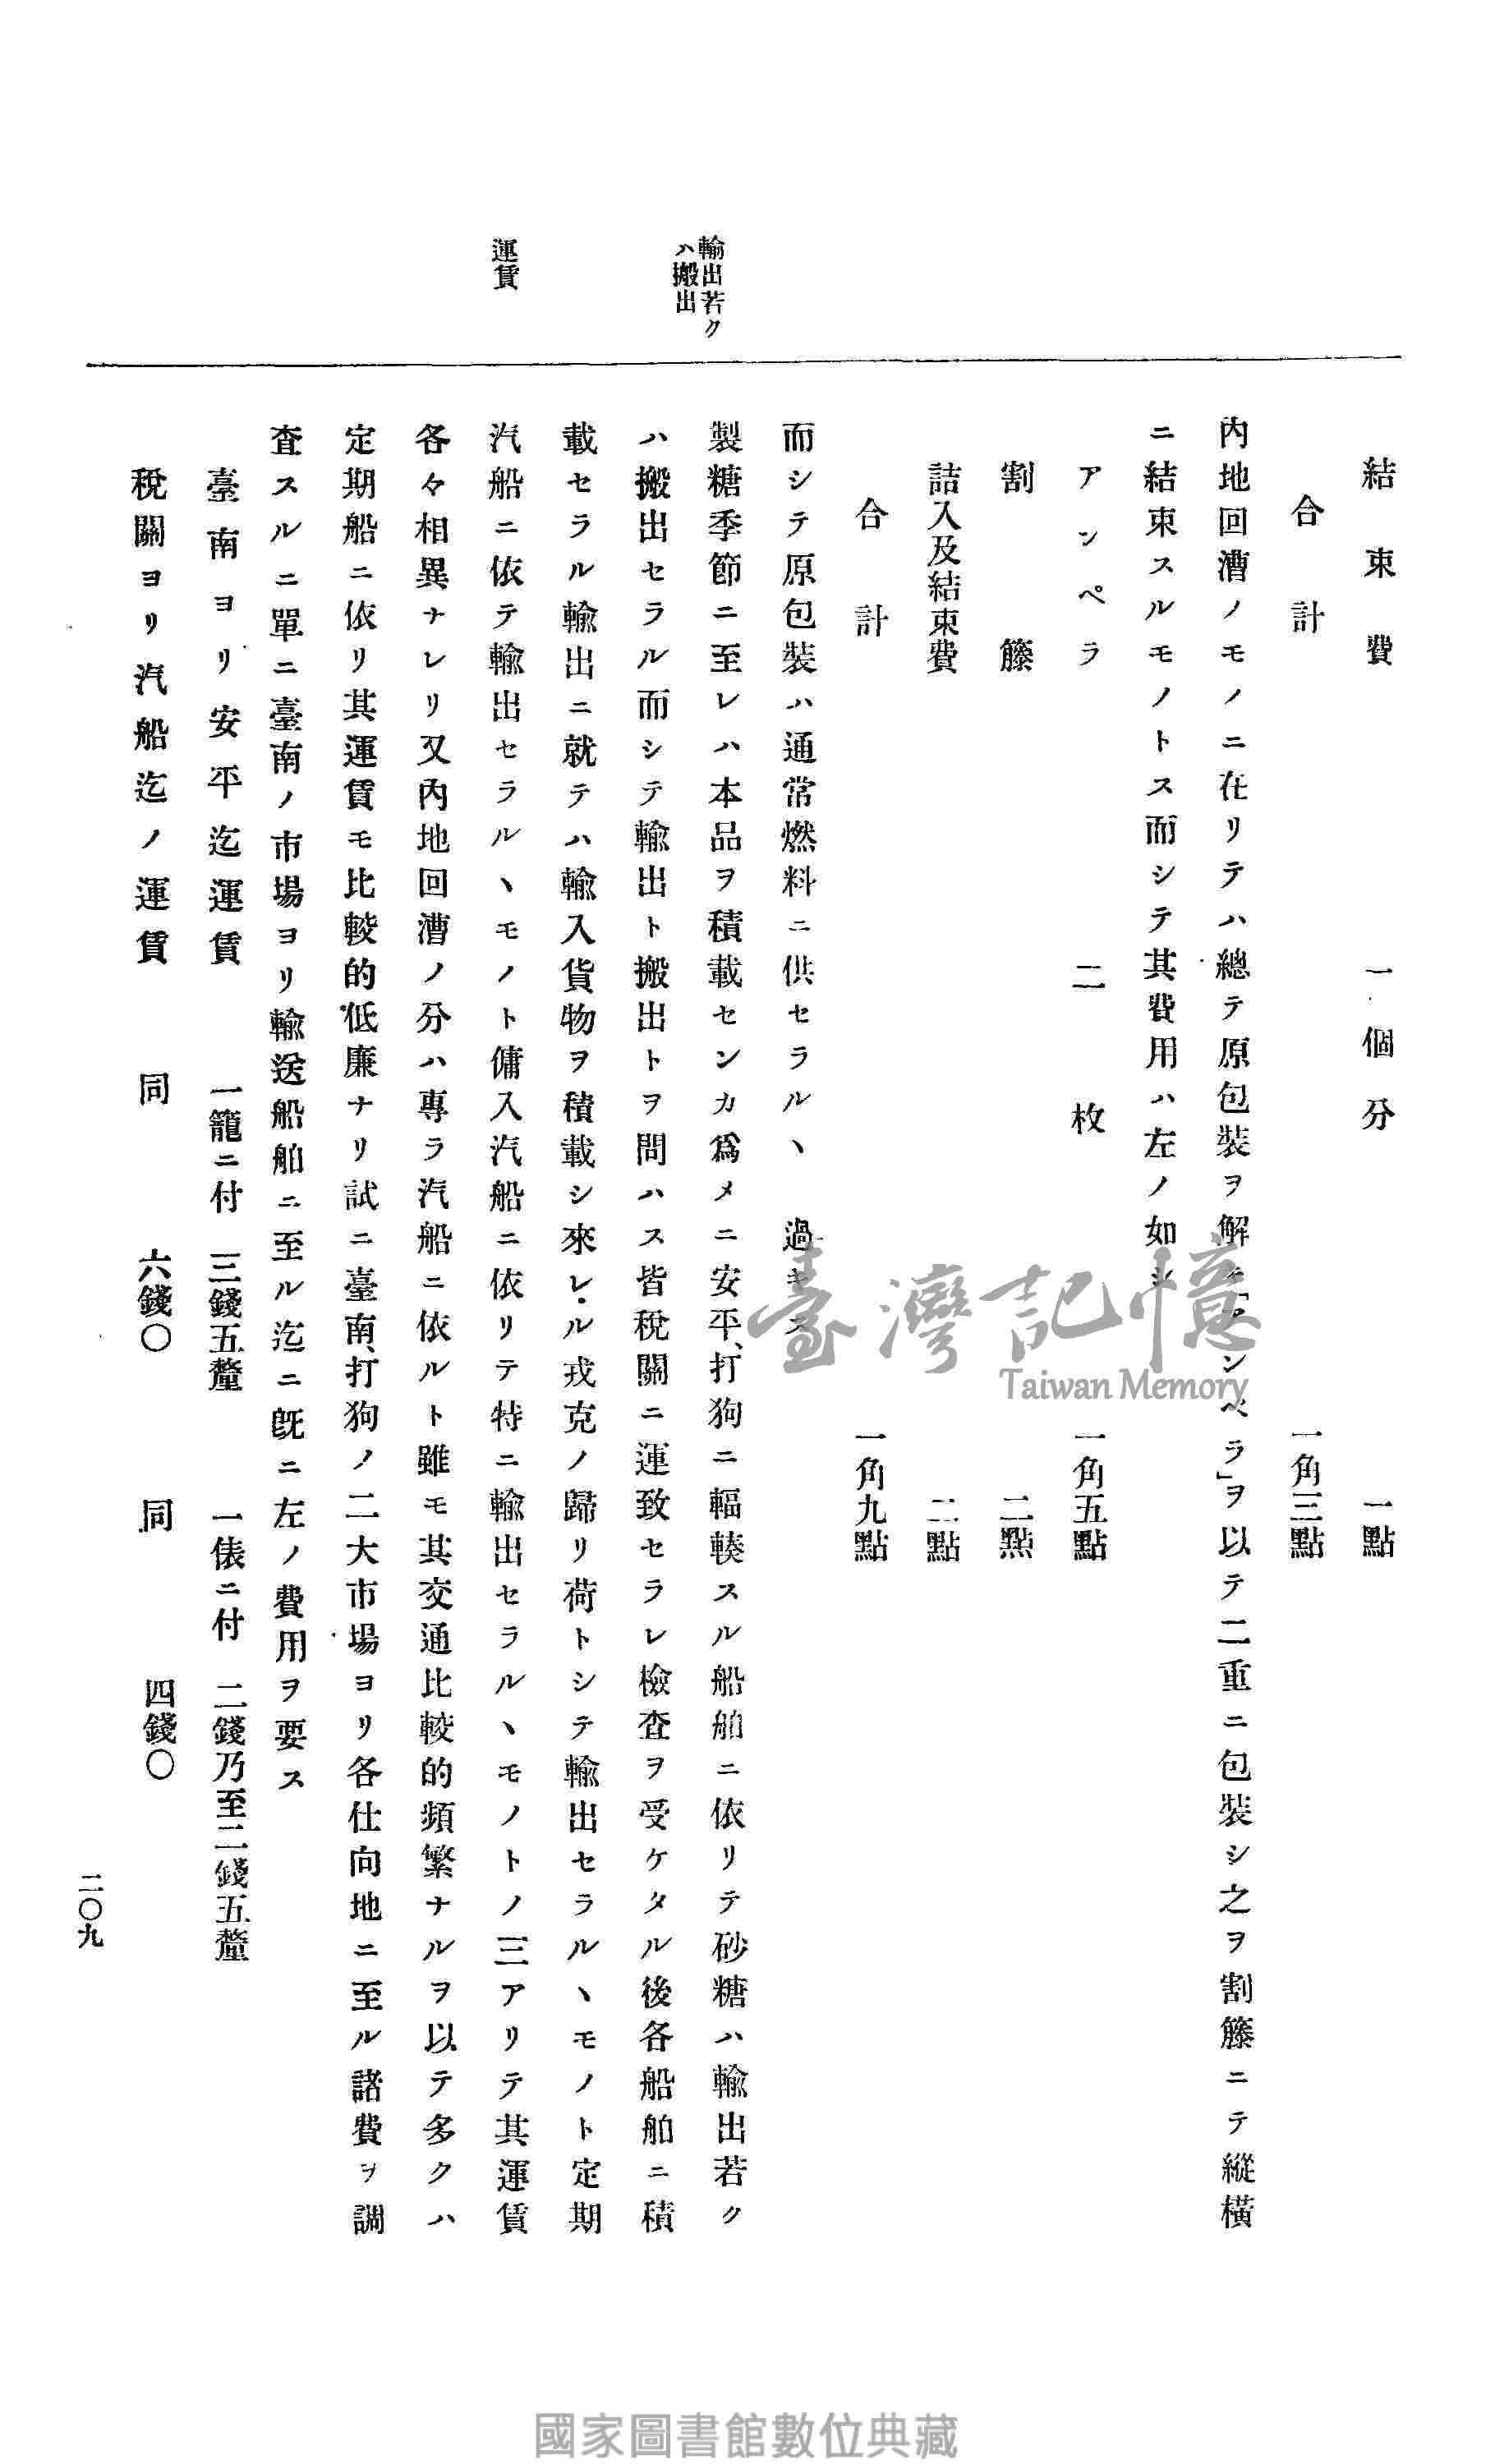 輸出若ク
ハ搬出
運賃
結束費 一個分 一點
合計 一角三點
內地回漕ノモノニ在リテハ總テ原包裝ヲ解キ「アンペラ」ヲ以テ二重ニ包裝シ之ヲ割籐ニテ縱橫
ニ結束スルモノトス而シテ其費用ハ左ノ如シ
アンペラ 二枚 一角五點
割籐 二點
詰入及結束費 二點
合計 一角九點
而シテ原包裝ハ通常燃料ニ供セラルヽ過キス
製糖季節ニ至レハ本品ヲ積載センカ爲メニ安平、打狗ニ輻輳スル船舶ニ依リテ砂糖ハ輸出若ク
ハ搬出セラル而シテ輸出ト搬出トヲ問ハス皆稅關ニ運致セラレ檢查ヲ受ケタル後各船舶ニ積
載セラル輸出ニ就テハ輸入貨物ヲ積載シ來レル戎克ノ歸リ荷トシテ輸出セラルヽモノト定期
汽船ニ依テ輸出セラルヽモノト傭入汽船ニ依リテ特ニ輸出セラルヽモノトノ三アリテ其運賃
各々相異ナレリ又內地回漕ノ分ハ專ラ汽船ニ依ルト雖モ其交通比較的頻繁ナルヲ以テ多クハ
定期船ニ依リ其運賃モ比較的低廉ナリ試ニ臺南、打狗ノ二大市場ヨリ各仕向地ニ至ル諸費ヲ調
查スルニ單ニ臺南ノ市場ヨリ輸送船舶ニ至ル迄ニ旣ニ左ノ費用ヲ要ス
臺南ヨリ安平迄運賃 一籠ニ付 三錢五釐 一俵ニ付 二錢乃至二錢五釐
稅關ヨリ汽船迄ノ運賃 同 六錢〇 同 四錢〇
二〇九
臺灣記憶
Taiwan Memory
國家圖書館數位典藏